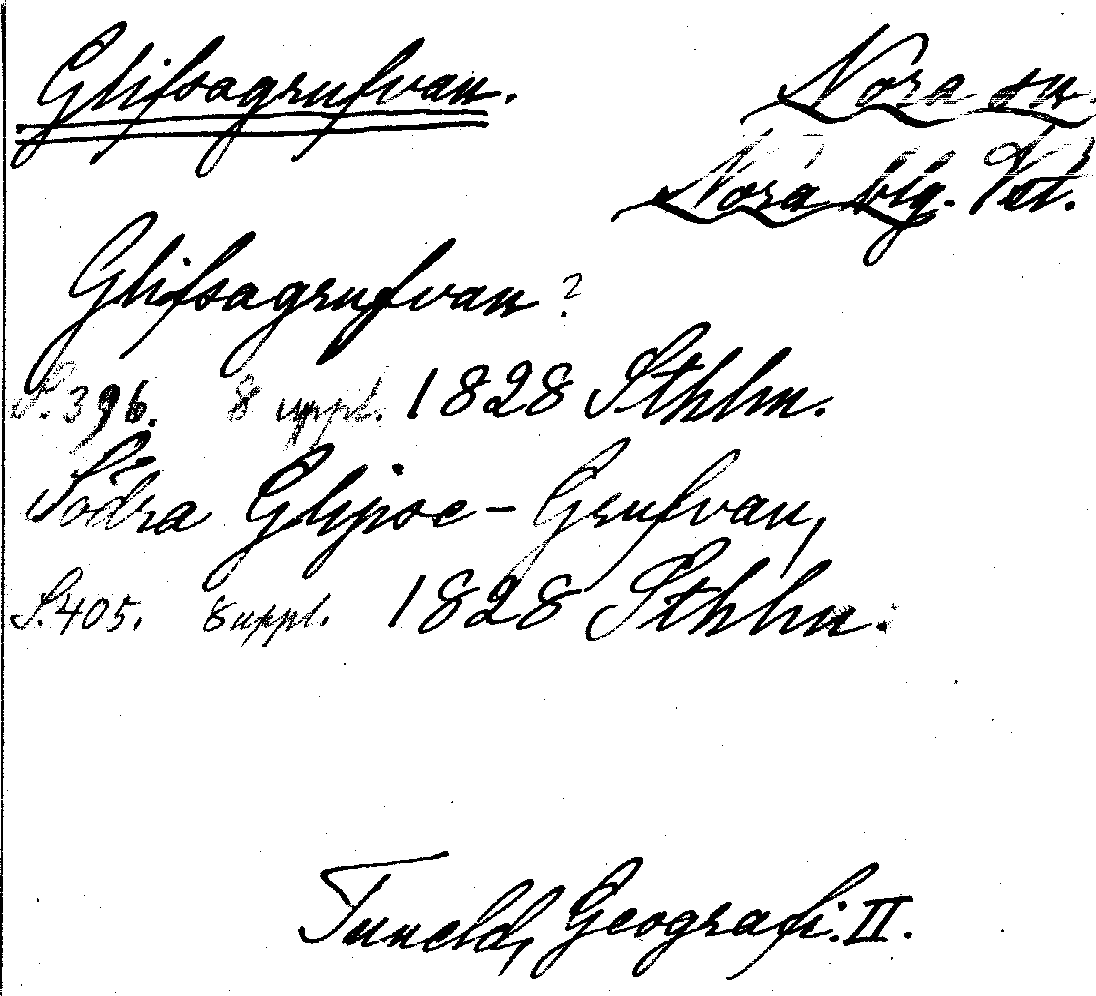 Glifsagrufvan. Nora sn.
Nora blg. Vst.
Glifsagrufvan?
S. 396. 8 uppl. 1828 Sthlm.
Södra Glijsoe-Grufvan,
S. 405. 8 uppl. 1828 Sthlm.
Tuneld, Geografi. II.